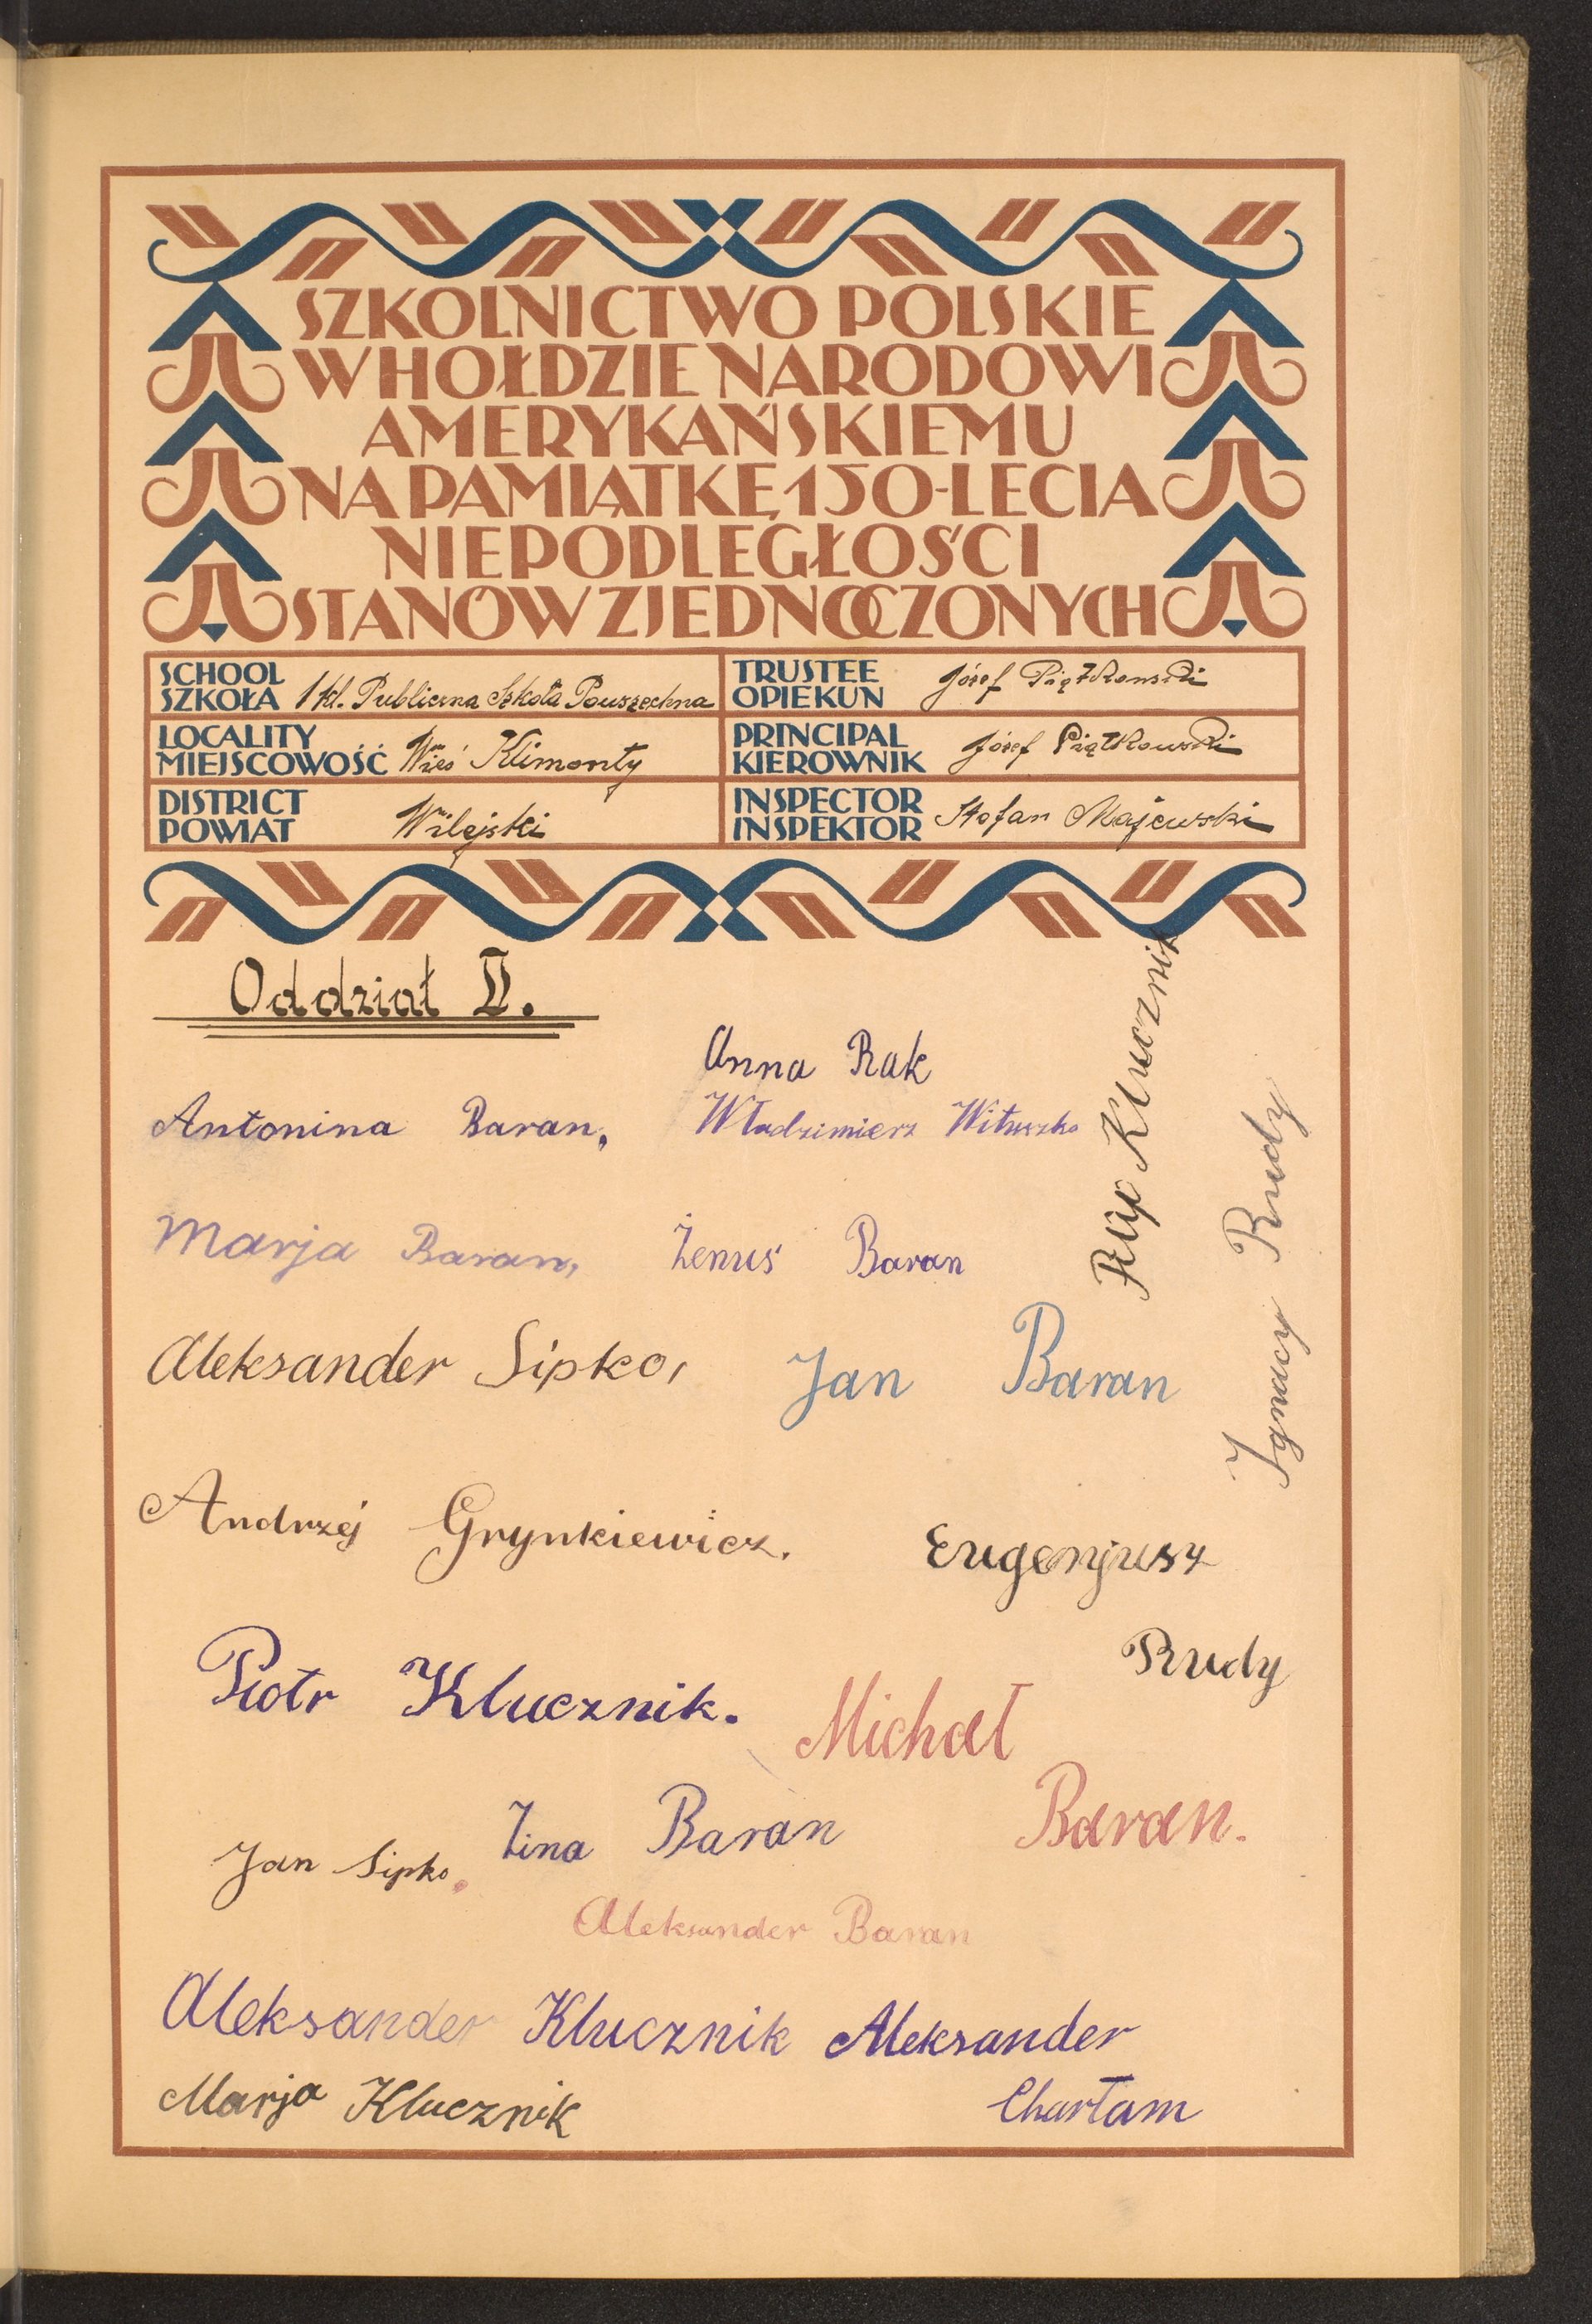 SZKOLNICTWO POLSKIE
W HOŁDZIE NARODOWI
AMERYKAŃSKIEMU
NA PAMIĄTKĘ 150-LECIA
NIEPODLEGŁOŚCI
STANÓW ZJEDNOCZONYCH
SCHOOL
SZKOŁA 1 kl. Publiczna Szkoła Powszechna
TRUSTEE
OPIEKUN Józef Piątkowski
LOCALITY
MIEJSCOWOŚĆ Wieś Klimonty
PRINCIPAL
KIEROWNIK Józef Piątkowski
DISTRICT
POWIAT Wilejski
INSPECTOR
INSPEKTOR Stefan Majewski
Oddział II.
Anna Rak
Antonina Baran,
Władzimierz Wituszko
Klucznik
Ignacy Rudy
Marja Baran,
Żenuś Baran
Aleksander Sipko,
Jan Baran
Andrzej Grynkiewicz.
Eugenjusz
Rudy
Piotr Klucznik.
Michał
Baran.
Jan Sipko.
Zina Baran
Aleksander Baran
Aleksander Klucznik
Aleksander
Chartam
Marja Klucznik